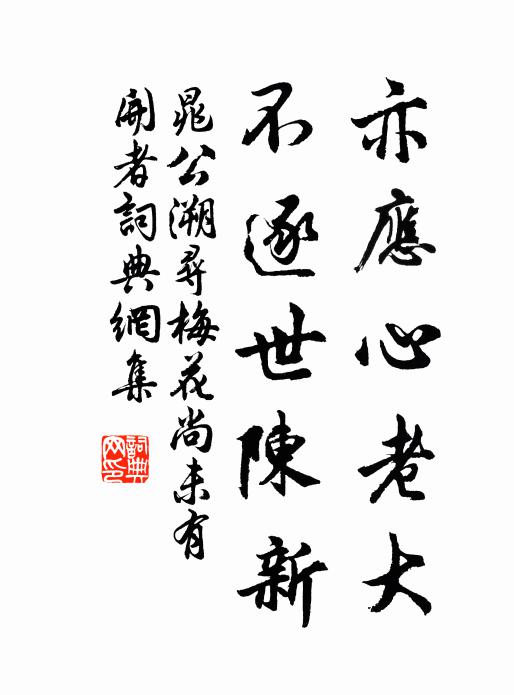 亦應心老大
不逐世陳新
晁公溯尋梅花尚未有
開者詞典網集
詞典
网印